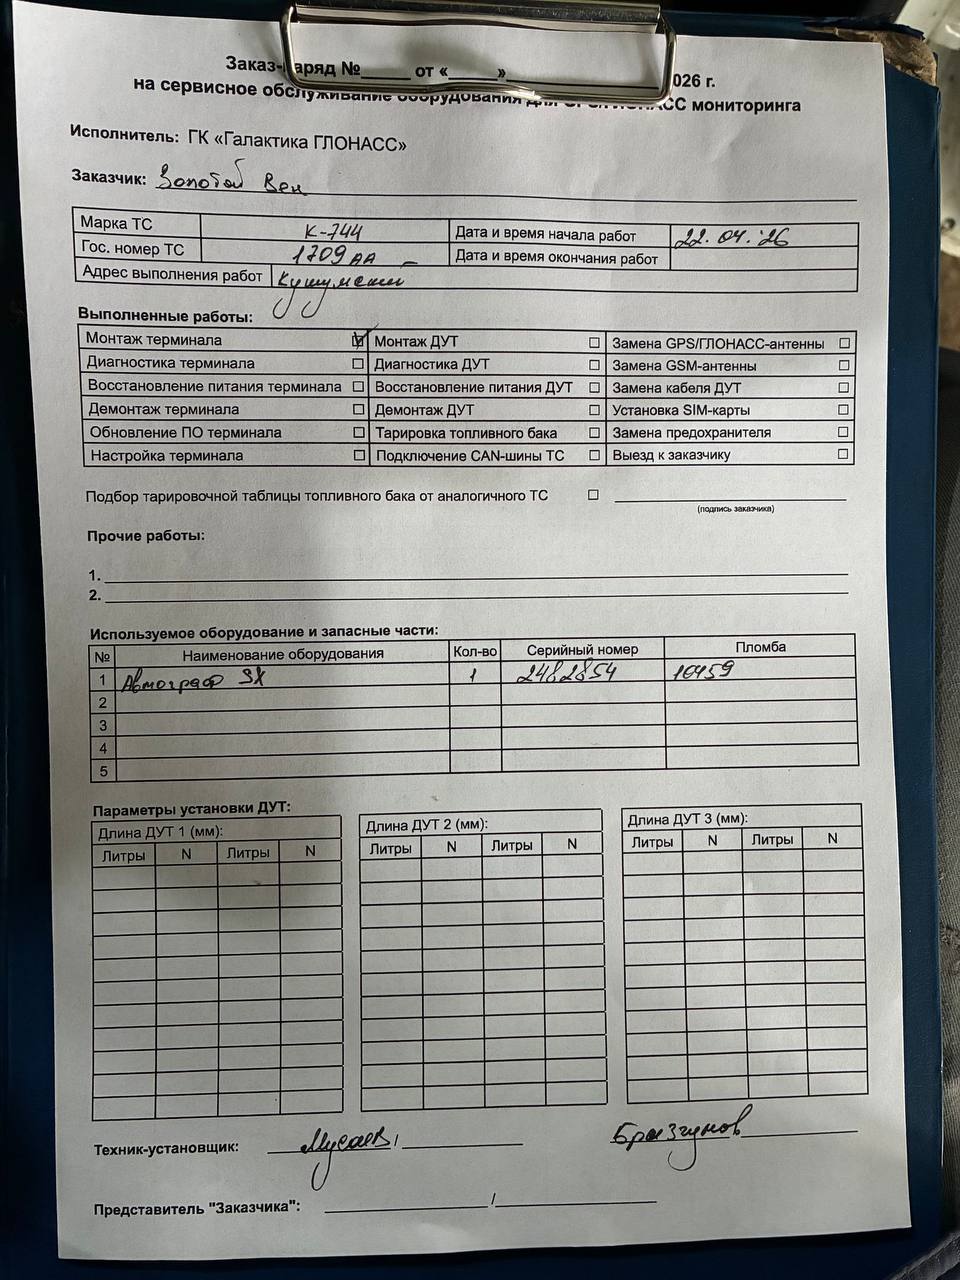 Заказ-наряд №_____ от «_____» 026 г.
на сервисное обслуживание оборудования для GPS/ГЛОНАСС мониторинга
Исполнитель: ГК «Галактика ГЛОНАСС»
Заказчик: Золотой Век
Марка ТС К-744 Дата и время начала работ 22.04.26
Гос. номер ТС 1709 АА Дата и время окончания работ
Адрес выполнения работ
Выполненные работы:
Монтаж терминала ☑ Монтаж ДУТ ☐ Замена GPS/ГЛОНАСС-антенны ☐
Диагностика терминала ☐ Диагностика ДУТ ☐ Замена GSM-антенны ☐
Восстановление питания терминала ☐ Восстановление питания ДУТ ☐ Замена кабеля ДУТ ☐
Демонтаж терминала ☐ Демонтаж ДУТ ☐ Установка SIM-карты ☐
Обновление ПО терминала ☐ Тарировка топливного бака ☐ Замена предохранителя ☐
Настройка терминала ☐ Подключение CAN-шины ТС ☐ Выезд к заказчику ☐
Подбор тарировочной таблицы топливного бака от аналогичного ТС ☐
(подпись заказчика)
Прочие работы:
1.
2.
Используемое оборудование и запасные части:
№ Наименование оборудования Кол-во Серийный номер Пломба
1 Автограф 3Х 1 2482854 10459
2
3
4
5
Параметры установки ДУТ:
Длина ДУТ 1 (мм): Длина ДУТ 2 (мм): Длина ДУТ 3 (мм):
Литры N Литры N Литры N Литры N Литры N Литры N
Техник-установщик: Мусаев / Бразгунов
Представитель "Заказчика": /